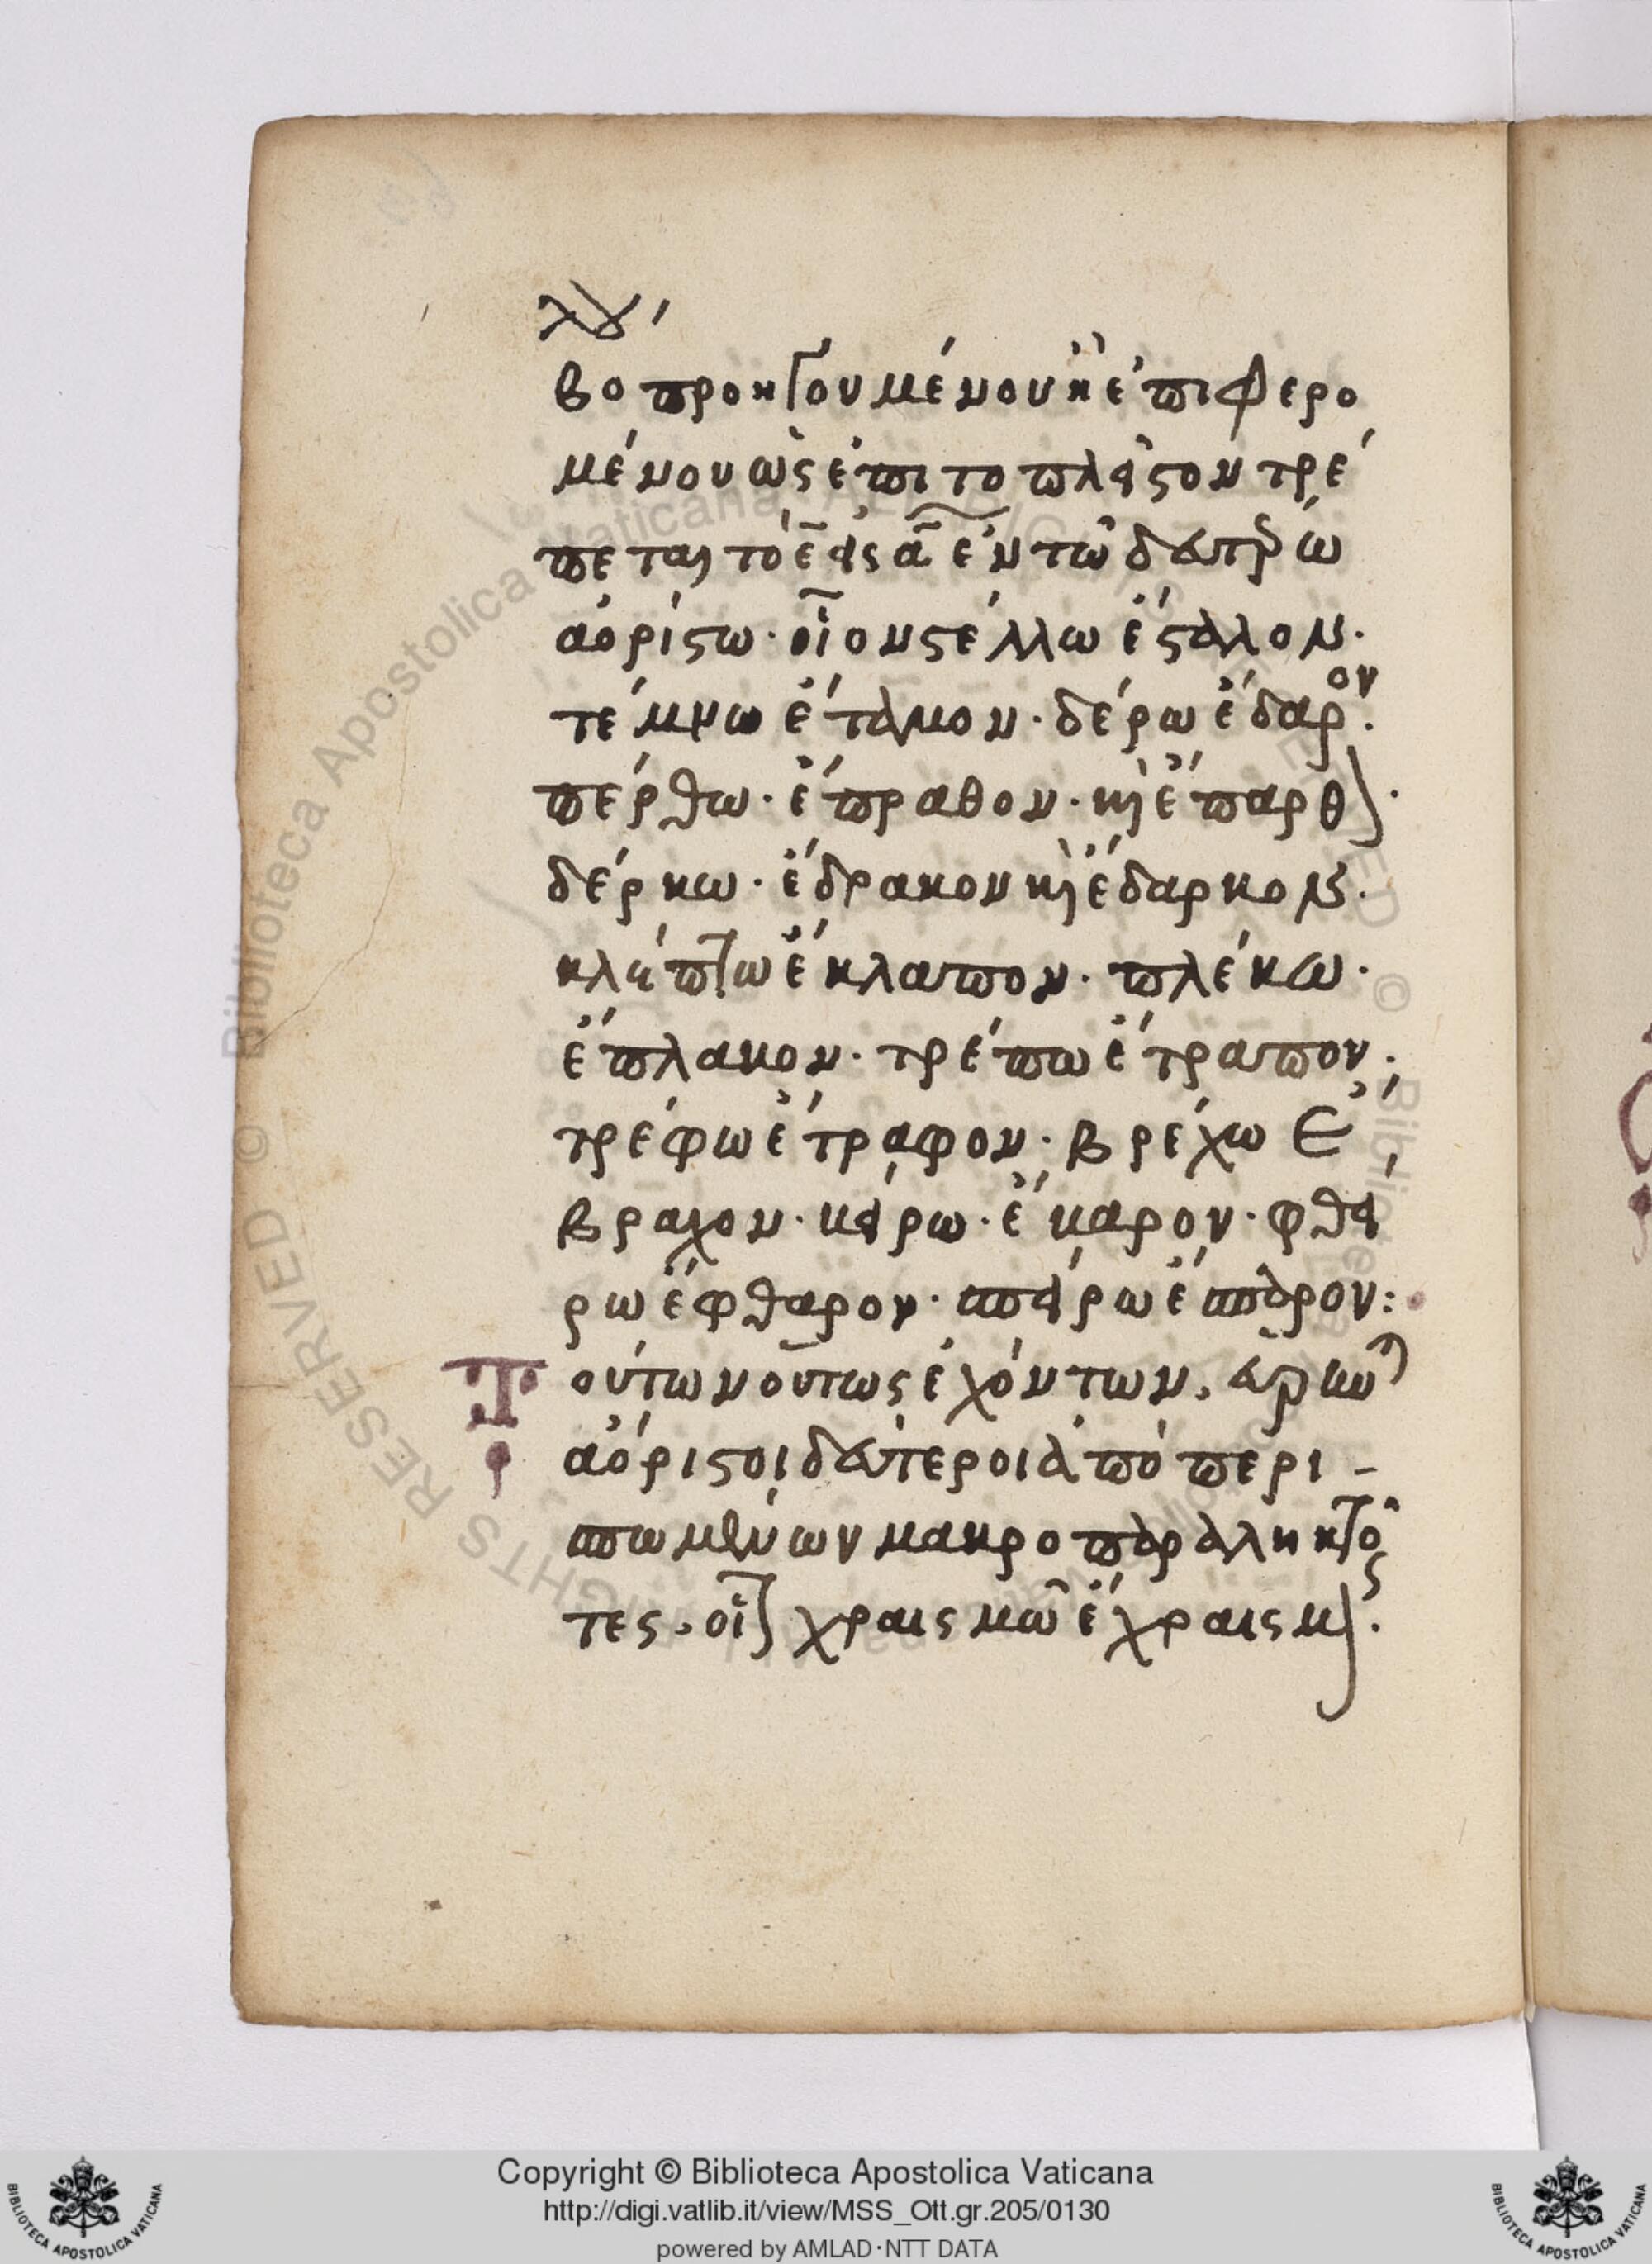 λγʹ
βο προηγουμένου ἢ ἐπιφερο
μένου ὡς ἐπι το πλεῖστον τρέ
πεται το ε̄ εἰς ᾱ ἐν τῶ δευτέρω
ἀορίστω· οἷον στέλλω ἔσταλον·
τέμνω ἔταμον· δέρω ἔδαρον·
πέρθω· ἔπραθον· καὶ ἔπαρθον·
δέρκω· ἔδρακον καὶ ἔδαρκον·
κλέπτω ἔκλαπον· πλέκω·
ἔπλακον· τρέπω ἔτραπον·
τρέφω ἔτραφον· βρέχω ἔ
βραχον· κείρω· ἔκαρον· φθεί
ρω ἔφθαρον· σπείρω ἔσπαρον:
Τούτων οὕτως ἐχόντων,
ἀόριστοι δεύτεροι ἀπὸ περι-
σπωμένων μακροπαραληκτοῦν
τες, οἷον χραισμῶ ἔχραισμον·
Copyright © Biblioteca Apostolica Vaticana
http://digi.vatlib.it/view/MSS_Ott.gr.205/0130
powered by AMLAD·NTT DATA
BIBLIOTECA APOSTOLICA VATICANA
BIBLIOTECA APOSTOLICA VATICANA